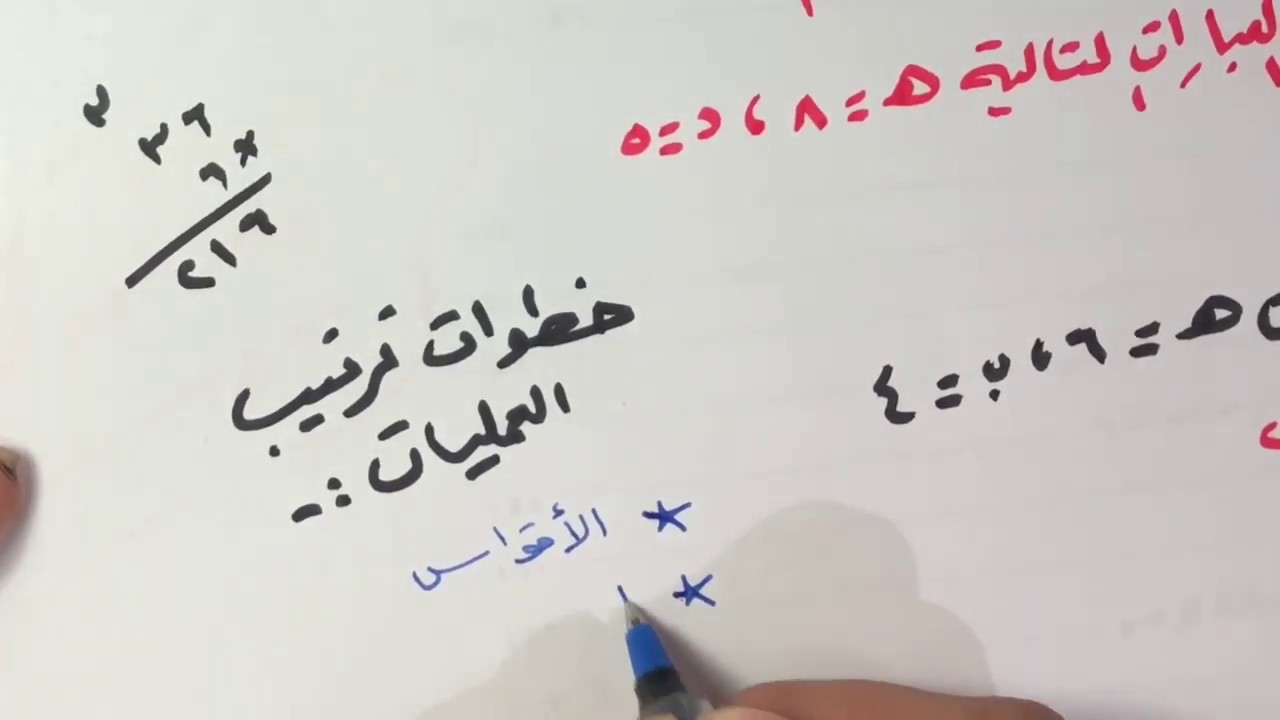 العبارات التالية هـ = ٨ ، د = ٥
هـ = ٦ ، ب = ٤
٣
٣٦
× ٦
٢١٦
خطوات ترتيب
العمليات :-
* الأقواس
*